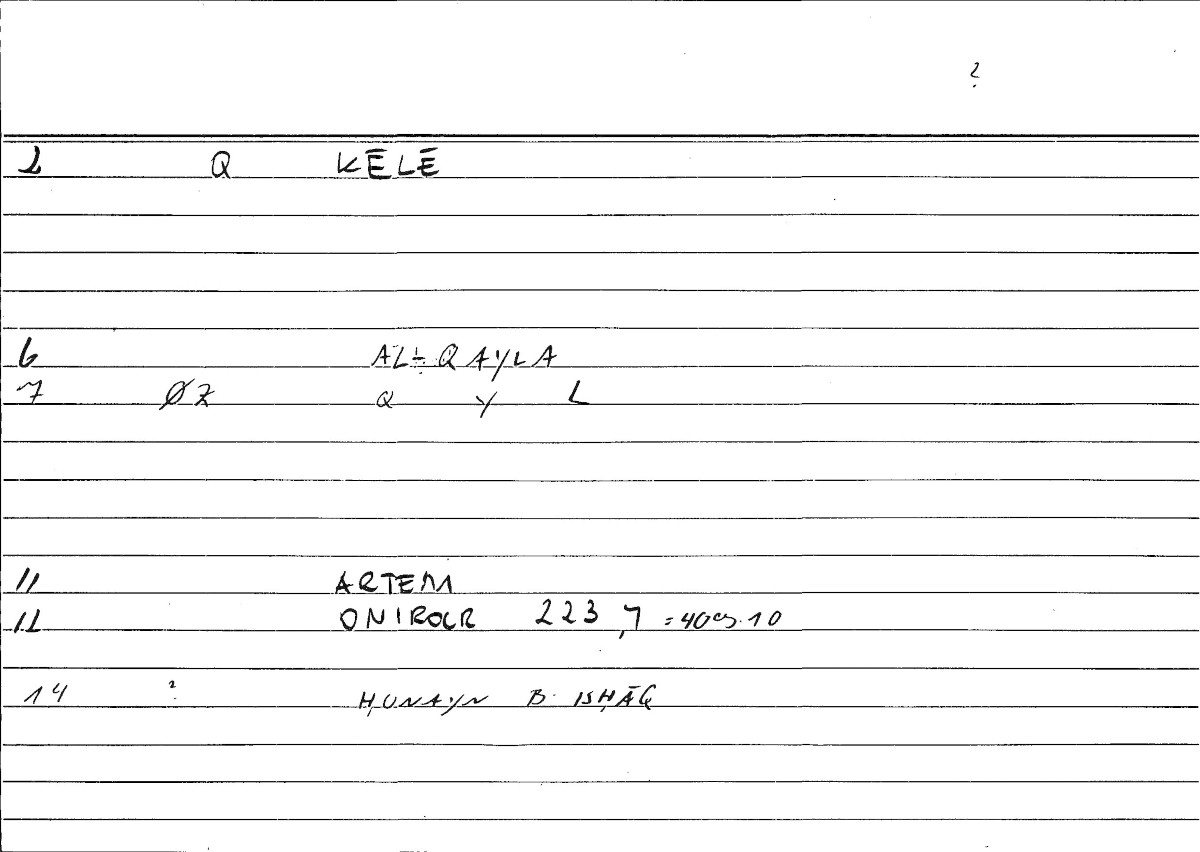 ?
2 Q KĒLĒ
6 AL-QAYLA
7 ØZ Q Y L
11 ARTEM
12 ONIROCR 223,7 =40
14 ? ḤUNAYN B. ISḤĀQ